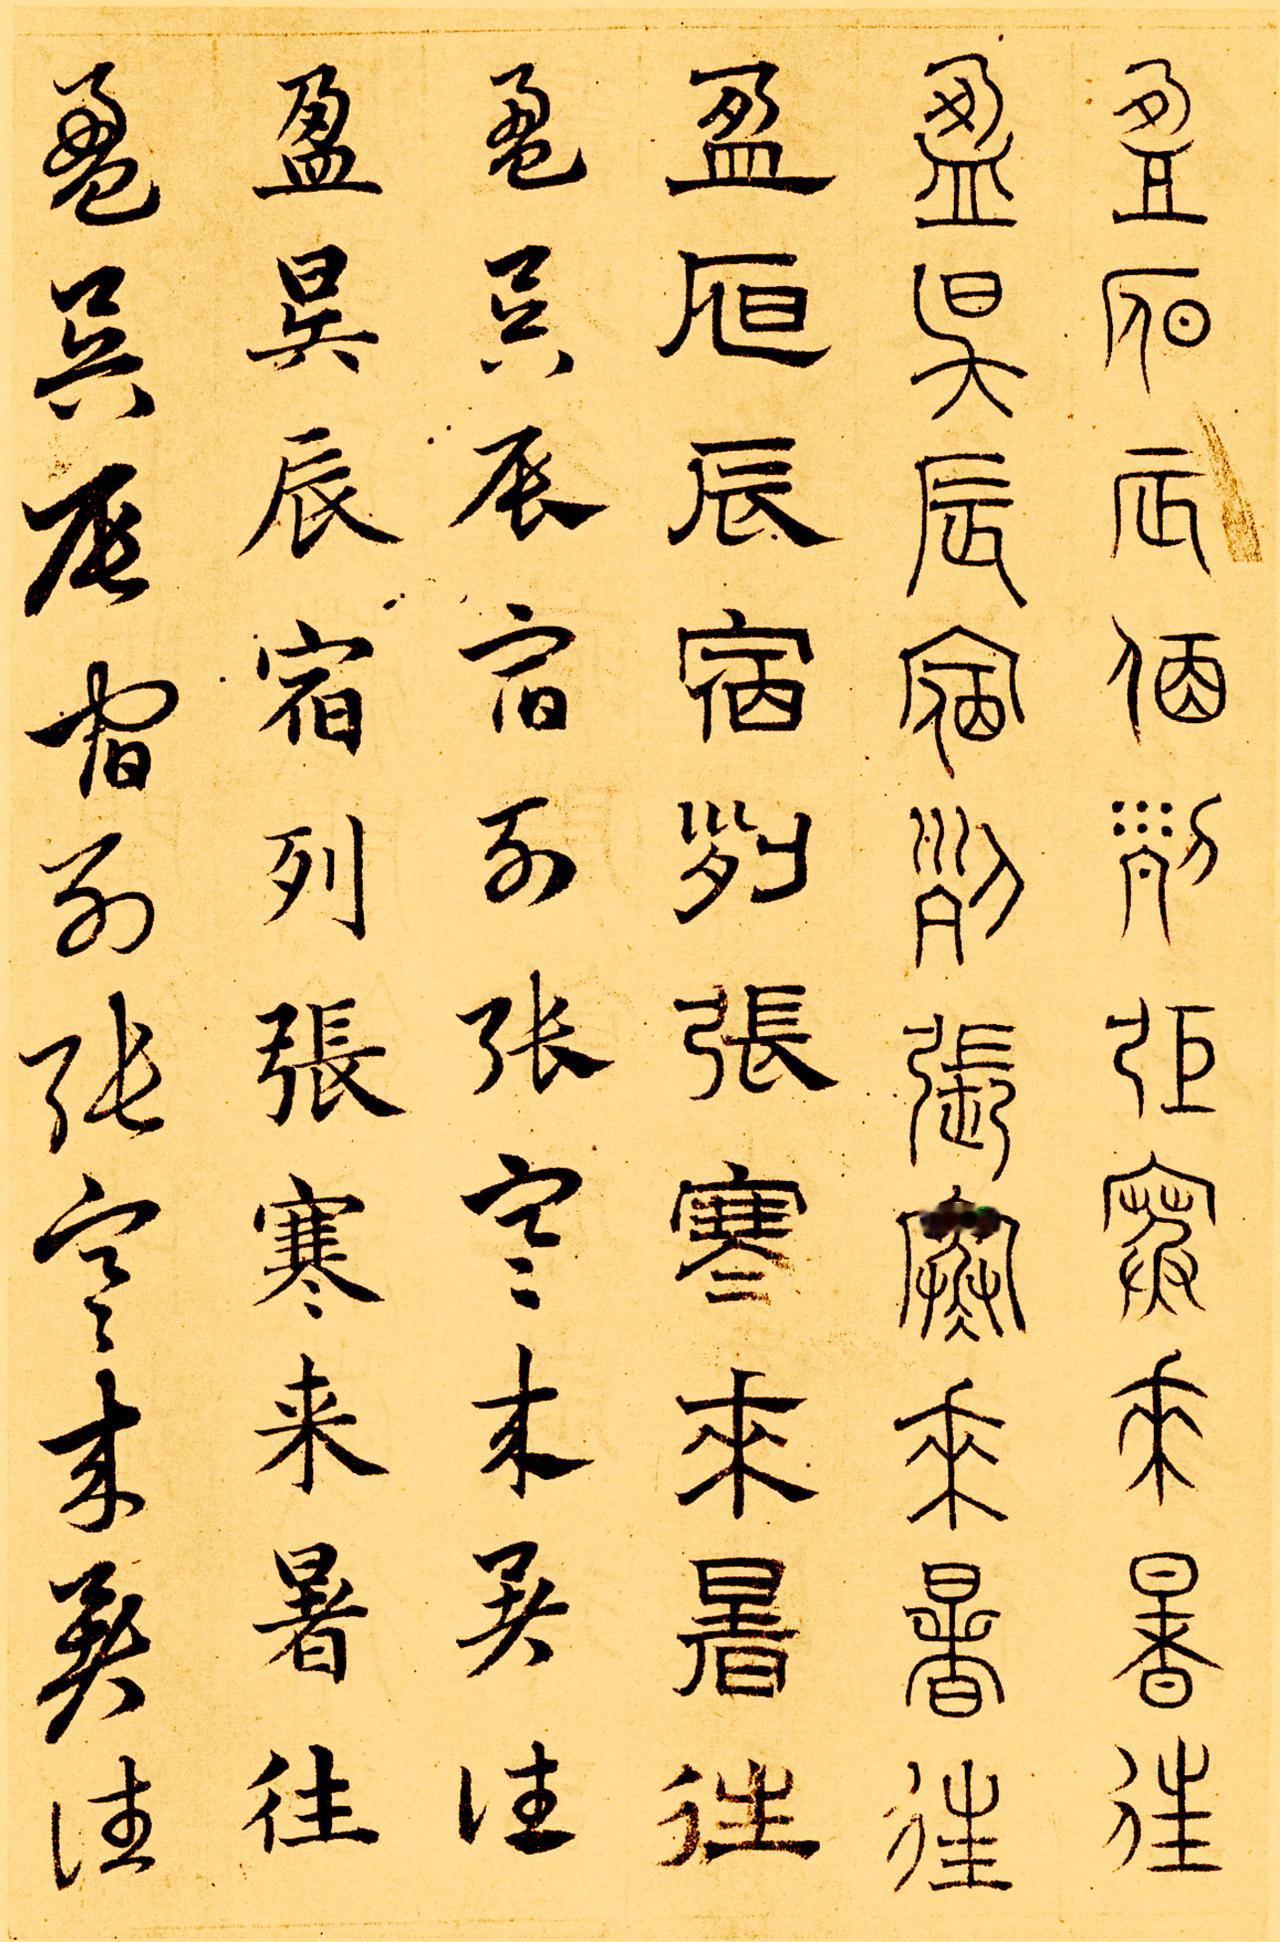 盈昃辰宿列張寒来暑往
盈昃辰宿列張寒來暑往
盈昃辰宿列張寒來暑往
盈昃辰宿列张寒来暑往
盈昃辰宿列張寒来暑往
盈昃辰宿列张寒来暑往